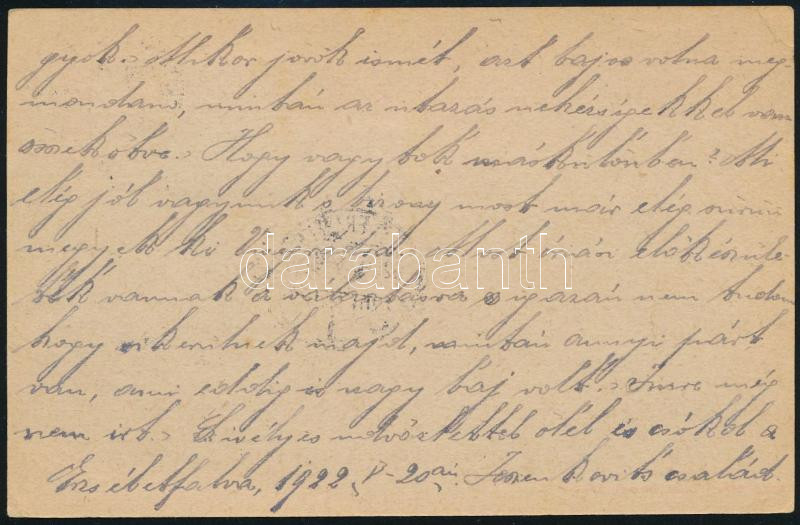 gyok. Mikor jövök ismét, azt bajos volna meg-
mondani, miután az utazás nehézségekkel van
összekötve. Hogy vagytok máskülönben? Mi
elég jól vagyunk s bizony most már elég sűrűn
megyek ki Most óriási előkészüle-
tek vannak a választásra s igazán nem tudom
hogy sikerülnek majd, miután annyi párt
van, ami eddig is nagy baj volt. Imre még
nem írt. Szívélyes üdvözlettel ölel és csókol a
Erzsébetfalva, 1922 V-20án. család.
darabanth